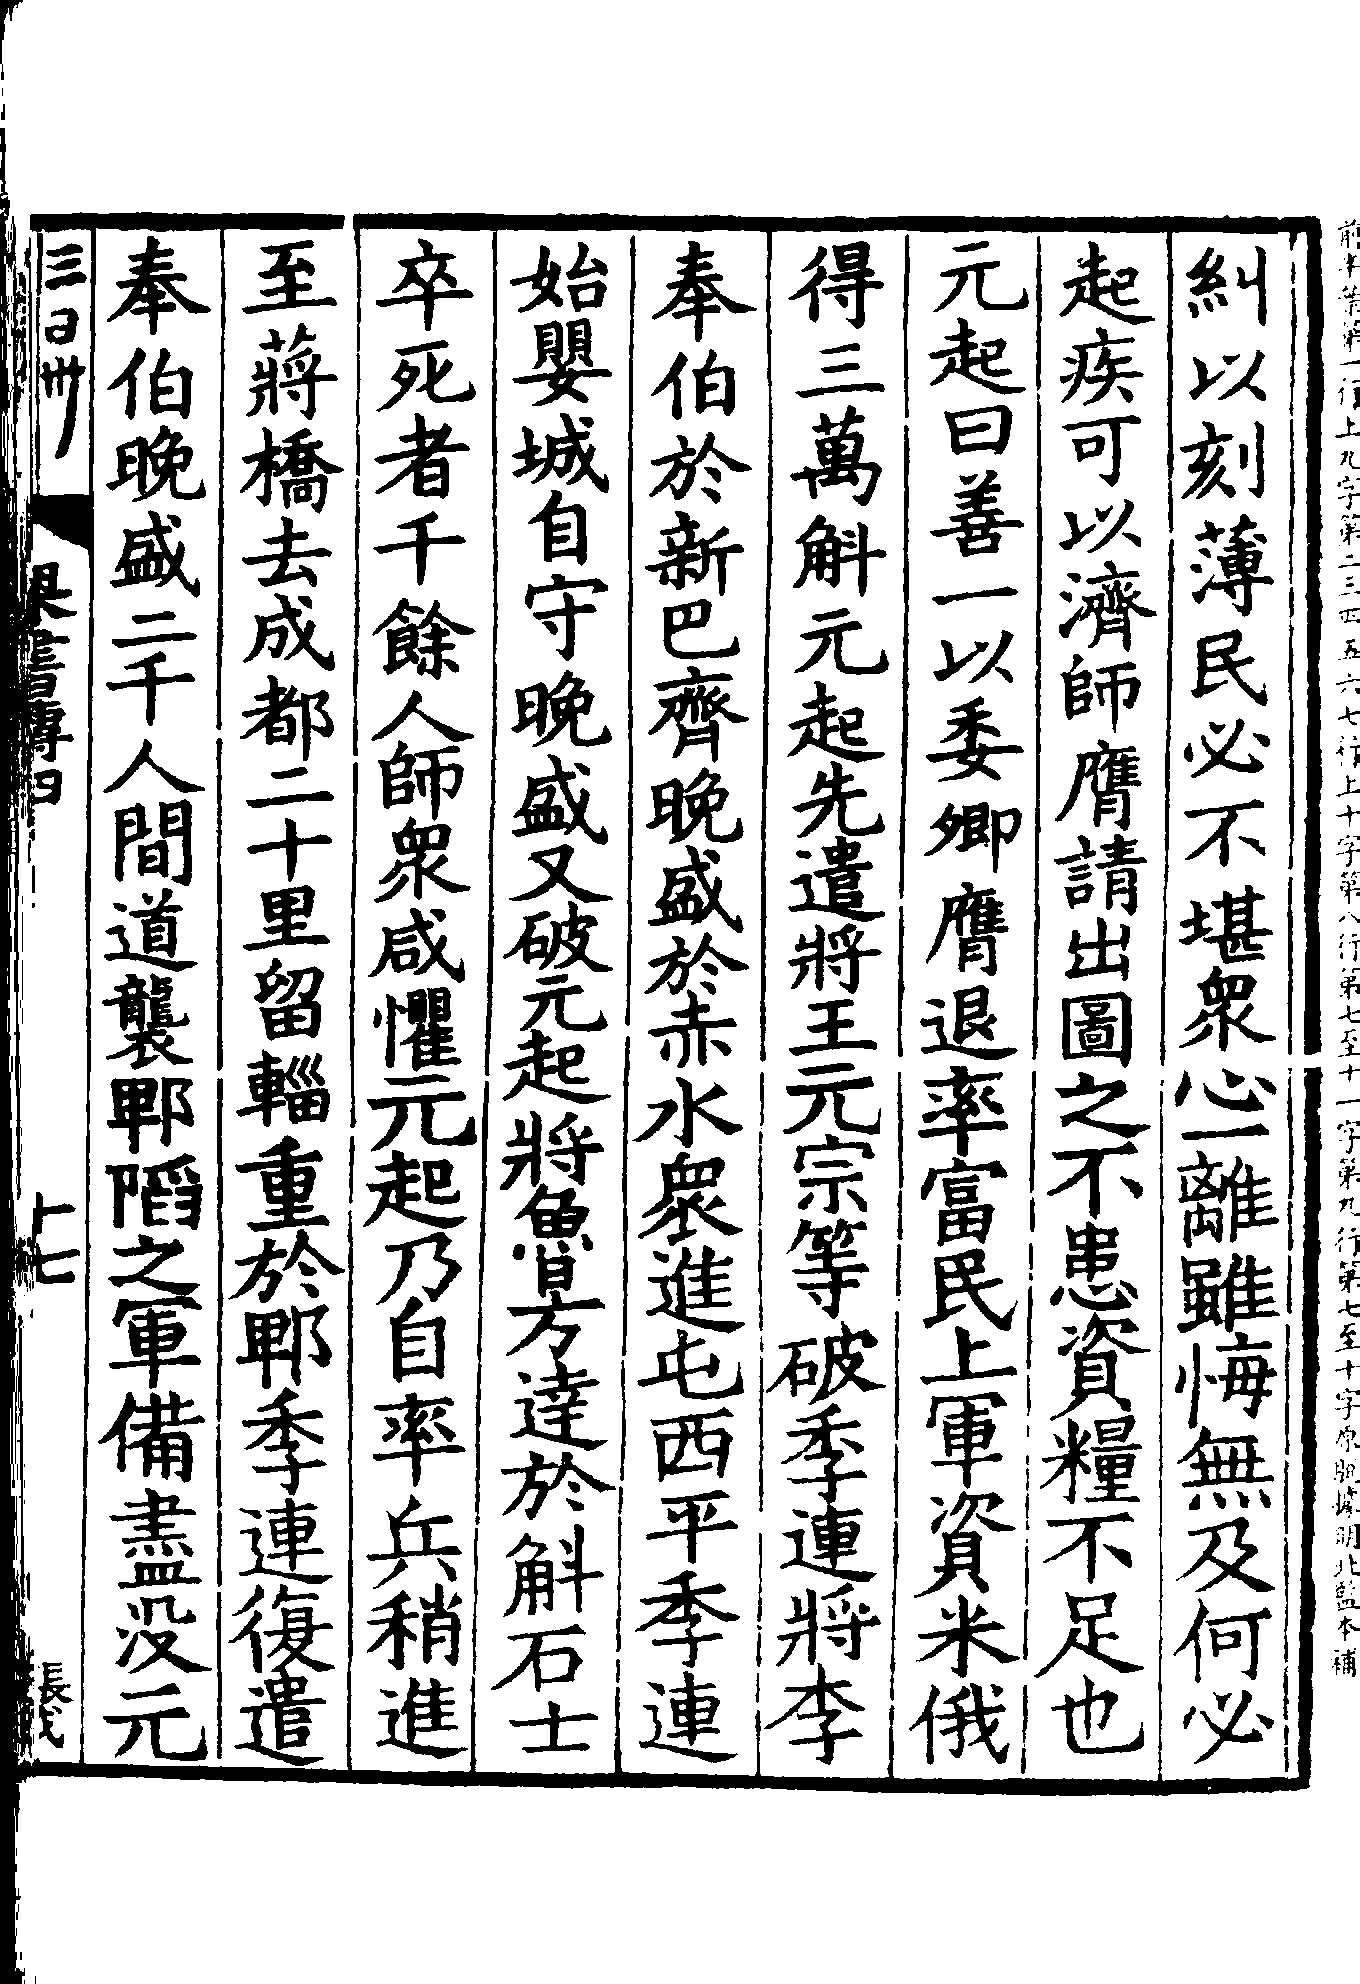 前半葉第一行上九字第二三四五六七行上十字第八行第七至十一字第九行第七至十字原脫據明北監本補
糾以刻薄民必不堪衆心一離雖悔無及何必
起疾可以濟師膺請出圖之不患資糧不足也
元起曰善一以委卿膺退率富民上軍資米俄
得三萬斛元起先遣將王元宗等破季連將李
奉伯於新巴齊晚盛於赤水衆進屯西平季連
始嬰城自守晚盛又破元起將魯方達於斛石士
卒死者千餘人師衆咸懼元起乃自率兵稍進
至蔣橋去成都二十里留輜重於郫季連復遣
奉伯晚盛二千人間道襲郫䧟之軍備盡没元
梁書傳四
十七